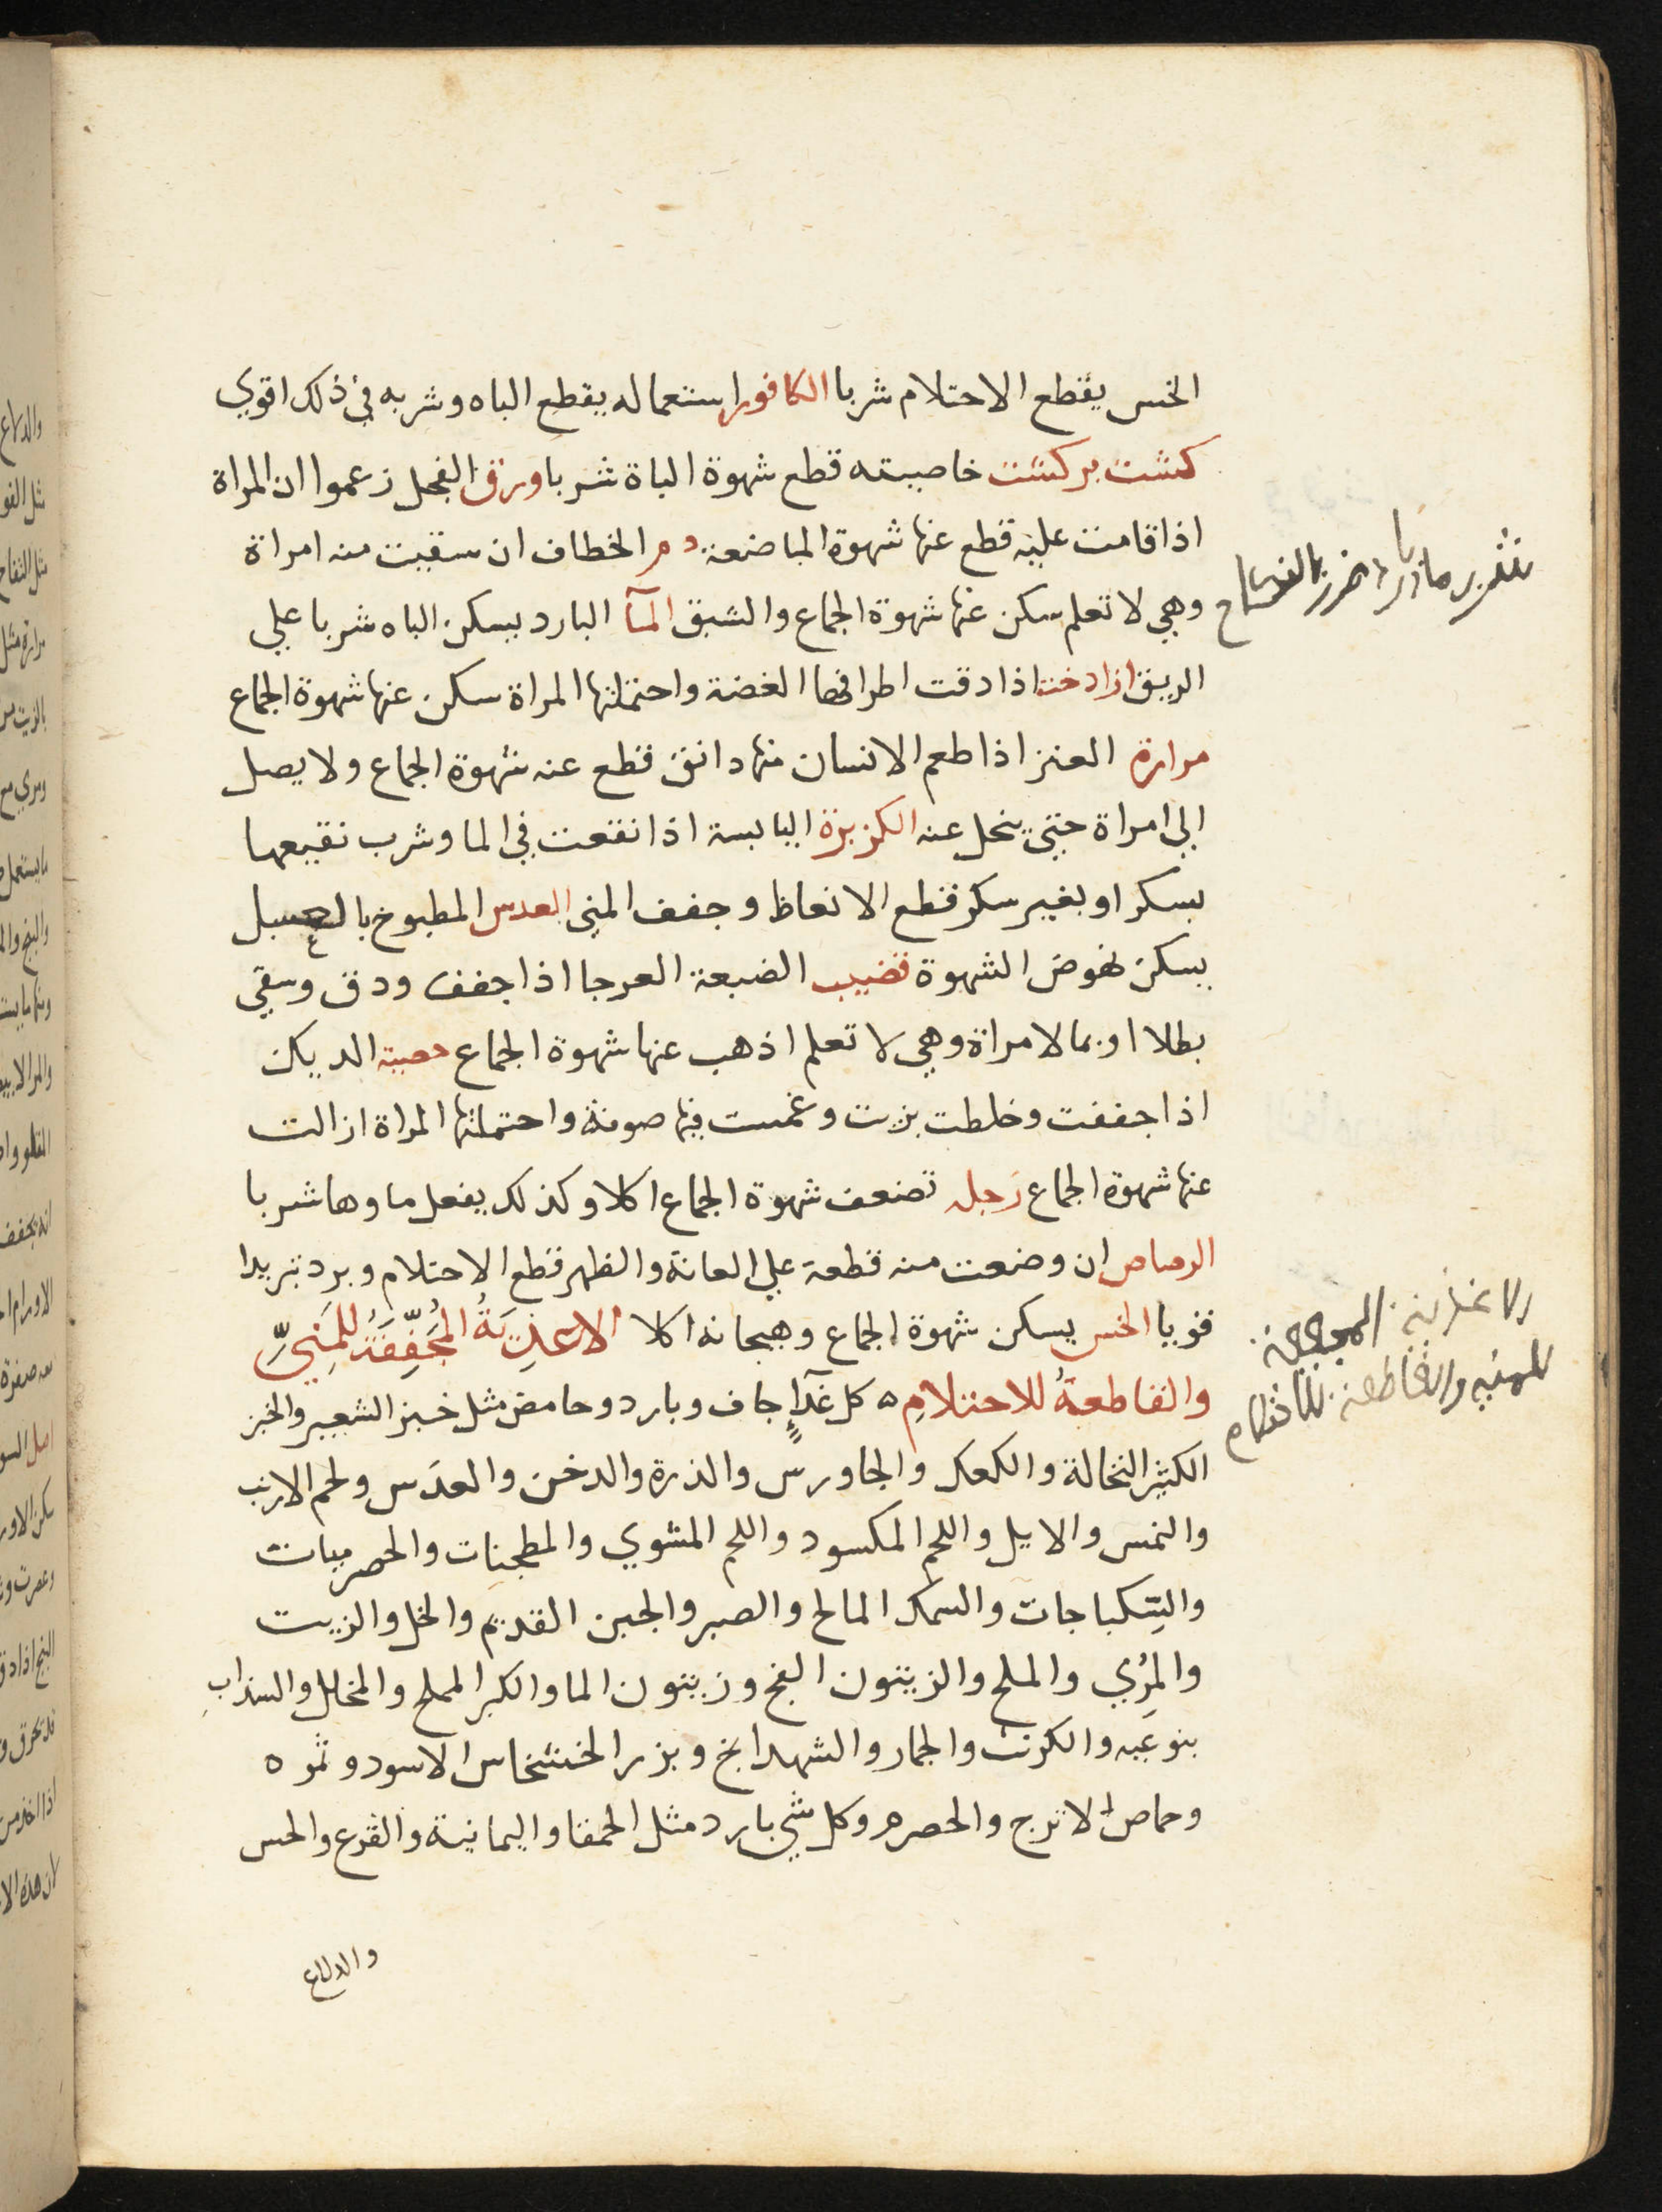 الخس يقطع الاحتلام شربا الكافور استعماله يقطع الباه وشربه في ذلك اقوي
كشت بركشت خاصيته قطع شهوة الباة شربا ورق الفجل زعموا ان المراة
اذا قامت عليه قطع عنها شهوة المباضعة دم الخطاف ان سقيت منه امراة
وهي لا تعلم سكن عنها شهوة الجماع والشبق المآ البارد يسكن الباه شربا علي
الريق ازادخت اذا دقت اطرافها الغضة واحتملتها المراة سكن عنها شهوة الجماع
مرارة العنز اذا طعم الانسان منها دانق قطع عنه شهوة الجماع ولا يصل
الي امراة حتي ينحل عنه الكزبرة اليابسة اذا نقعت في الما وشرب نقيعها
بسكر او بغير سكر قطع الانعاظ وجفف المني العدس المطبوخ بالعسل
يسكن نهوض الشهوة قضيب الضبعة العرجا اذا جفف ودق وسقي
بطلا او بما لامراة وهي لا تعلم اذهب عنها شهوة الجماع خصية الديك
اذا جففت وخلطت بزيت وغمست فيها صوفة واحتملتها المراة ازالت
عنها شهوة الجماع رجله تضعف شهوة الجماع اكلا وكذلك يفعل ماوها شربا
الرصاص ان وضعت منه قطعة علي العانة والظهر قطع الاحتلام وبرد تبريدا
قويا الخس يسكن شهوة الجماع وهيجانه اكلا الاغذِيَةُ المُجَفِّفَةُ للمَنِيِّ
والقاطعةُ للاحتلامِ ه كل غدآءٍ جاف وبارد وحامض مثل خبز الشعير والخبز
الكثير النخالة والكعك والجاورس والذرة والدخن والعدَس ولحم الارنب
والنمس والايل واللحم المكسود واللحم المشوي والمطجنات والحصرميات
والسِّكباجات والسمك المالح والصير والجبن القديم والخل والزيت
والمرُي والملح والزيتون الفج وزيتون الما والكبر المملح والمخلل والسذابِ
بنوعَيه والكرنب والجمار والشهدانج وبزر الخشخاش الاسود وثمره
وحماض الاترج والحصرم وكل شي بارد مثل الحمقا واليمانية والقرع والخس
والدلاع
الاغذية المجففة
للمني والقاطعة للاحتلام